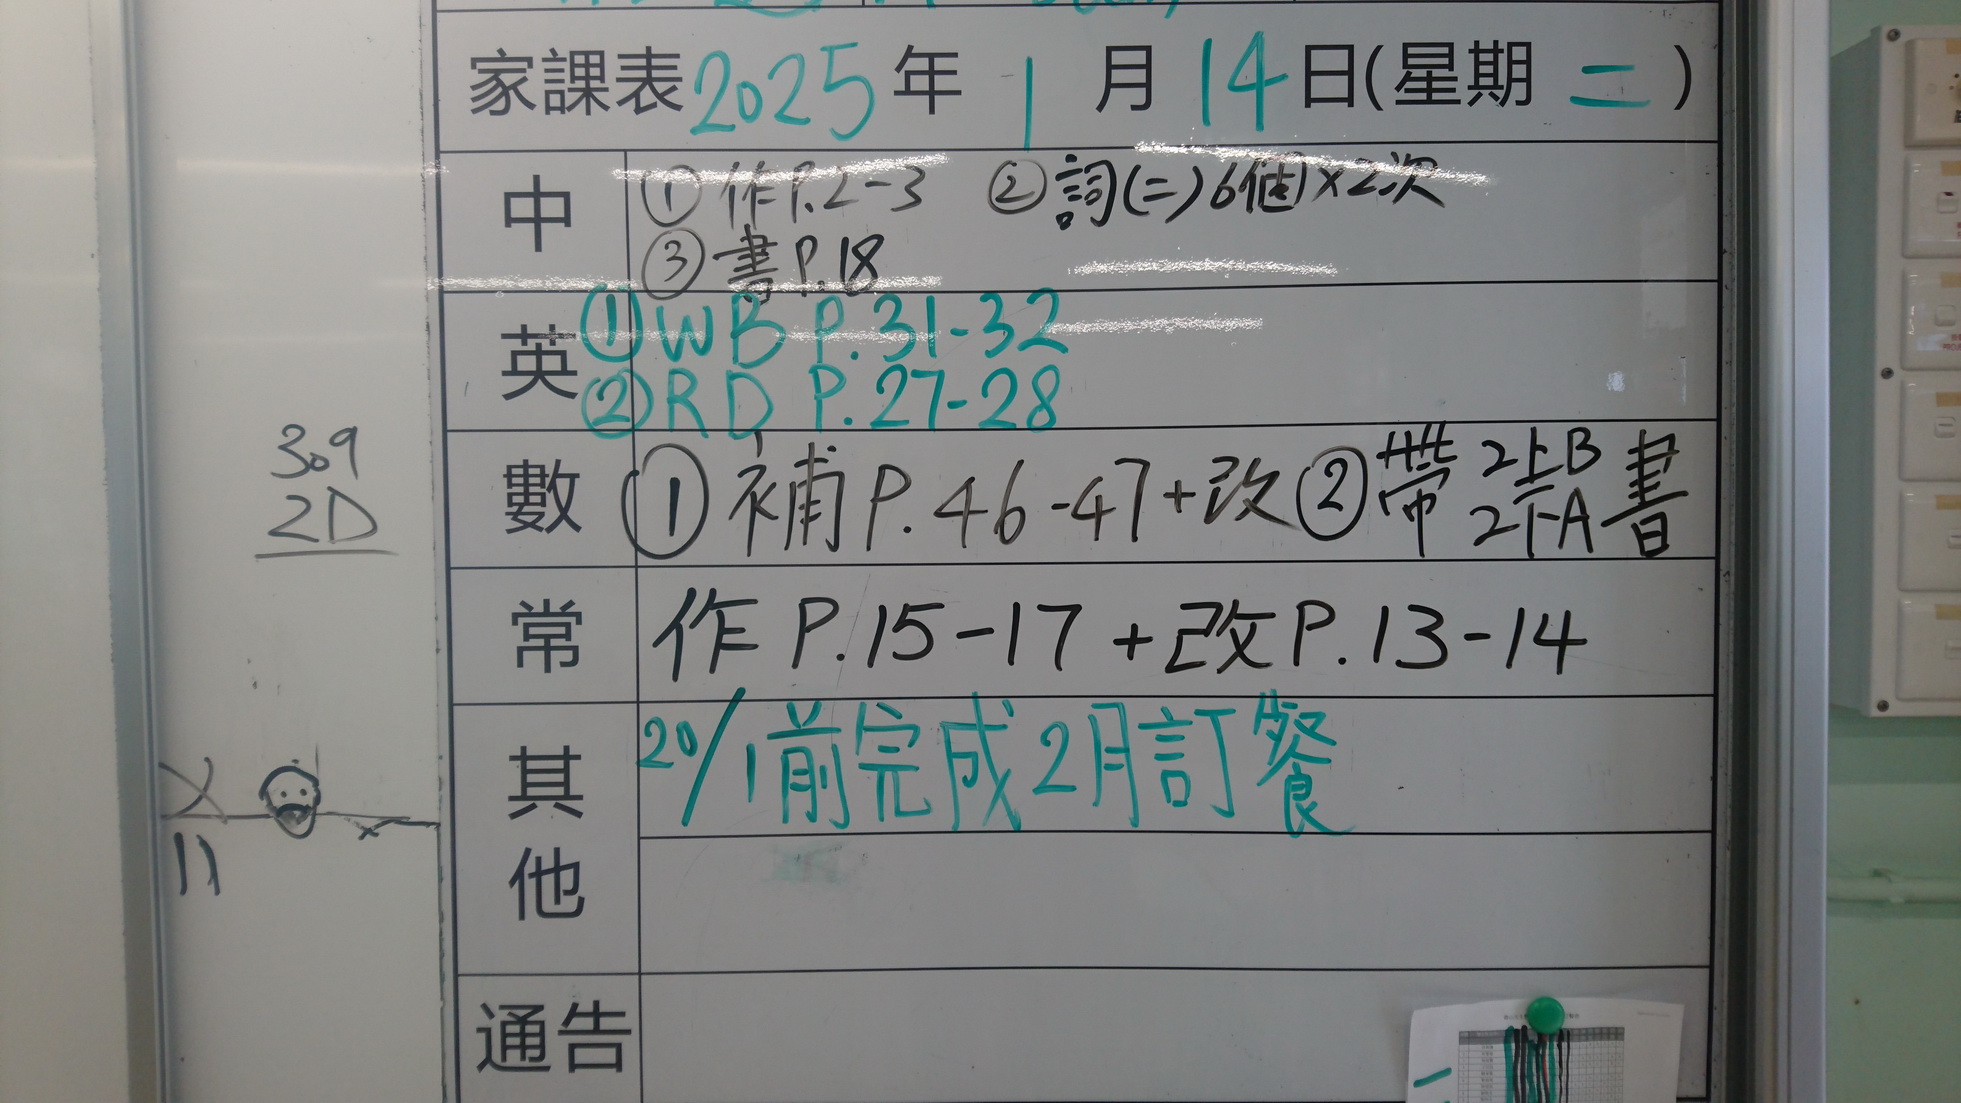 家課表2025年1月14日(星期二)
中
①作P.2-3 ②詞(二)6個x2次
③書P.18
英
①WB P.31-32
②RD P.27-28
數
①補P.46-47+改②帶2上B 2下A書
常
作P.15-17+改P.13-14
其他
20/1前完成2月訂餐
通告
309
2D